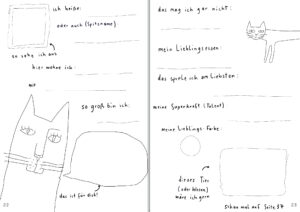 ich heiße:
oder auch: (Spitzname)
so sehe ich aus
hier wohne ich:
so groß bin ich:
das ist für dich!
22
das mag ich gar nicht:
mein Lieblingsessen:
das spiele ich am Liebsten:
meine Superkraft (Talent)
meine Lieblings-Farbe
dieses Tier
(oder Wesen)
wäre ich gern
schau mal auf Seite 57
23